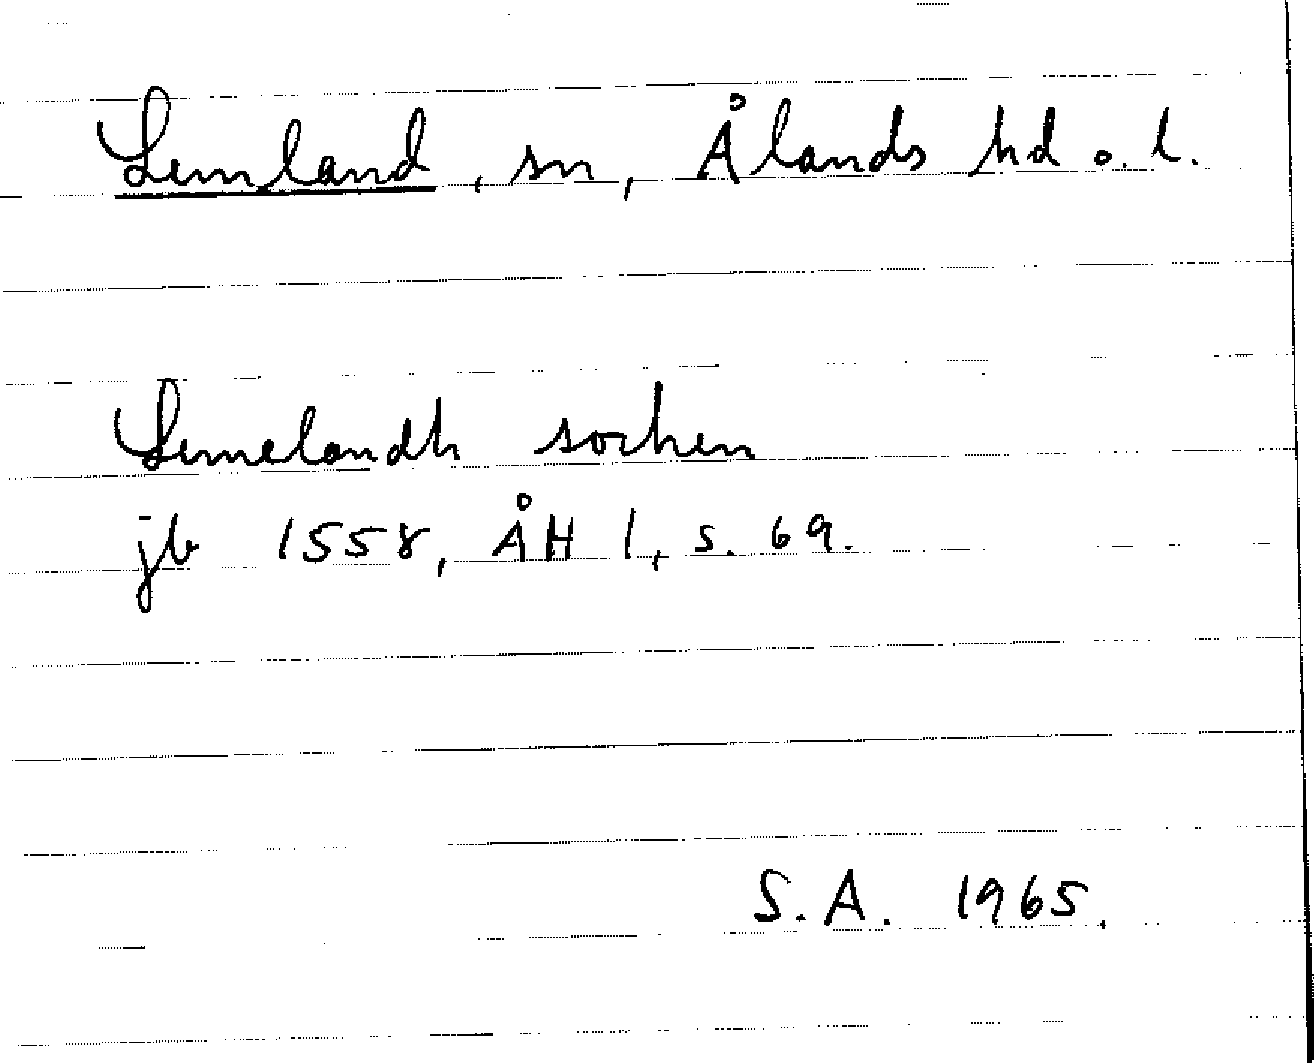 Lemland, sn, Ålands hd o. l.
Lemelandh sochen
jb 1558, ÅH 1, s. 69.
S.A. 1965.